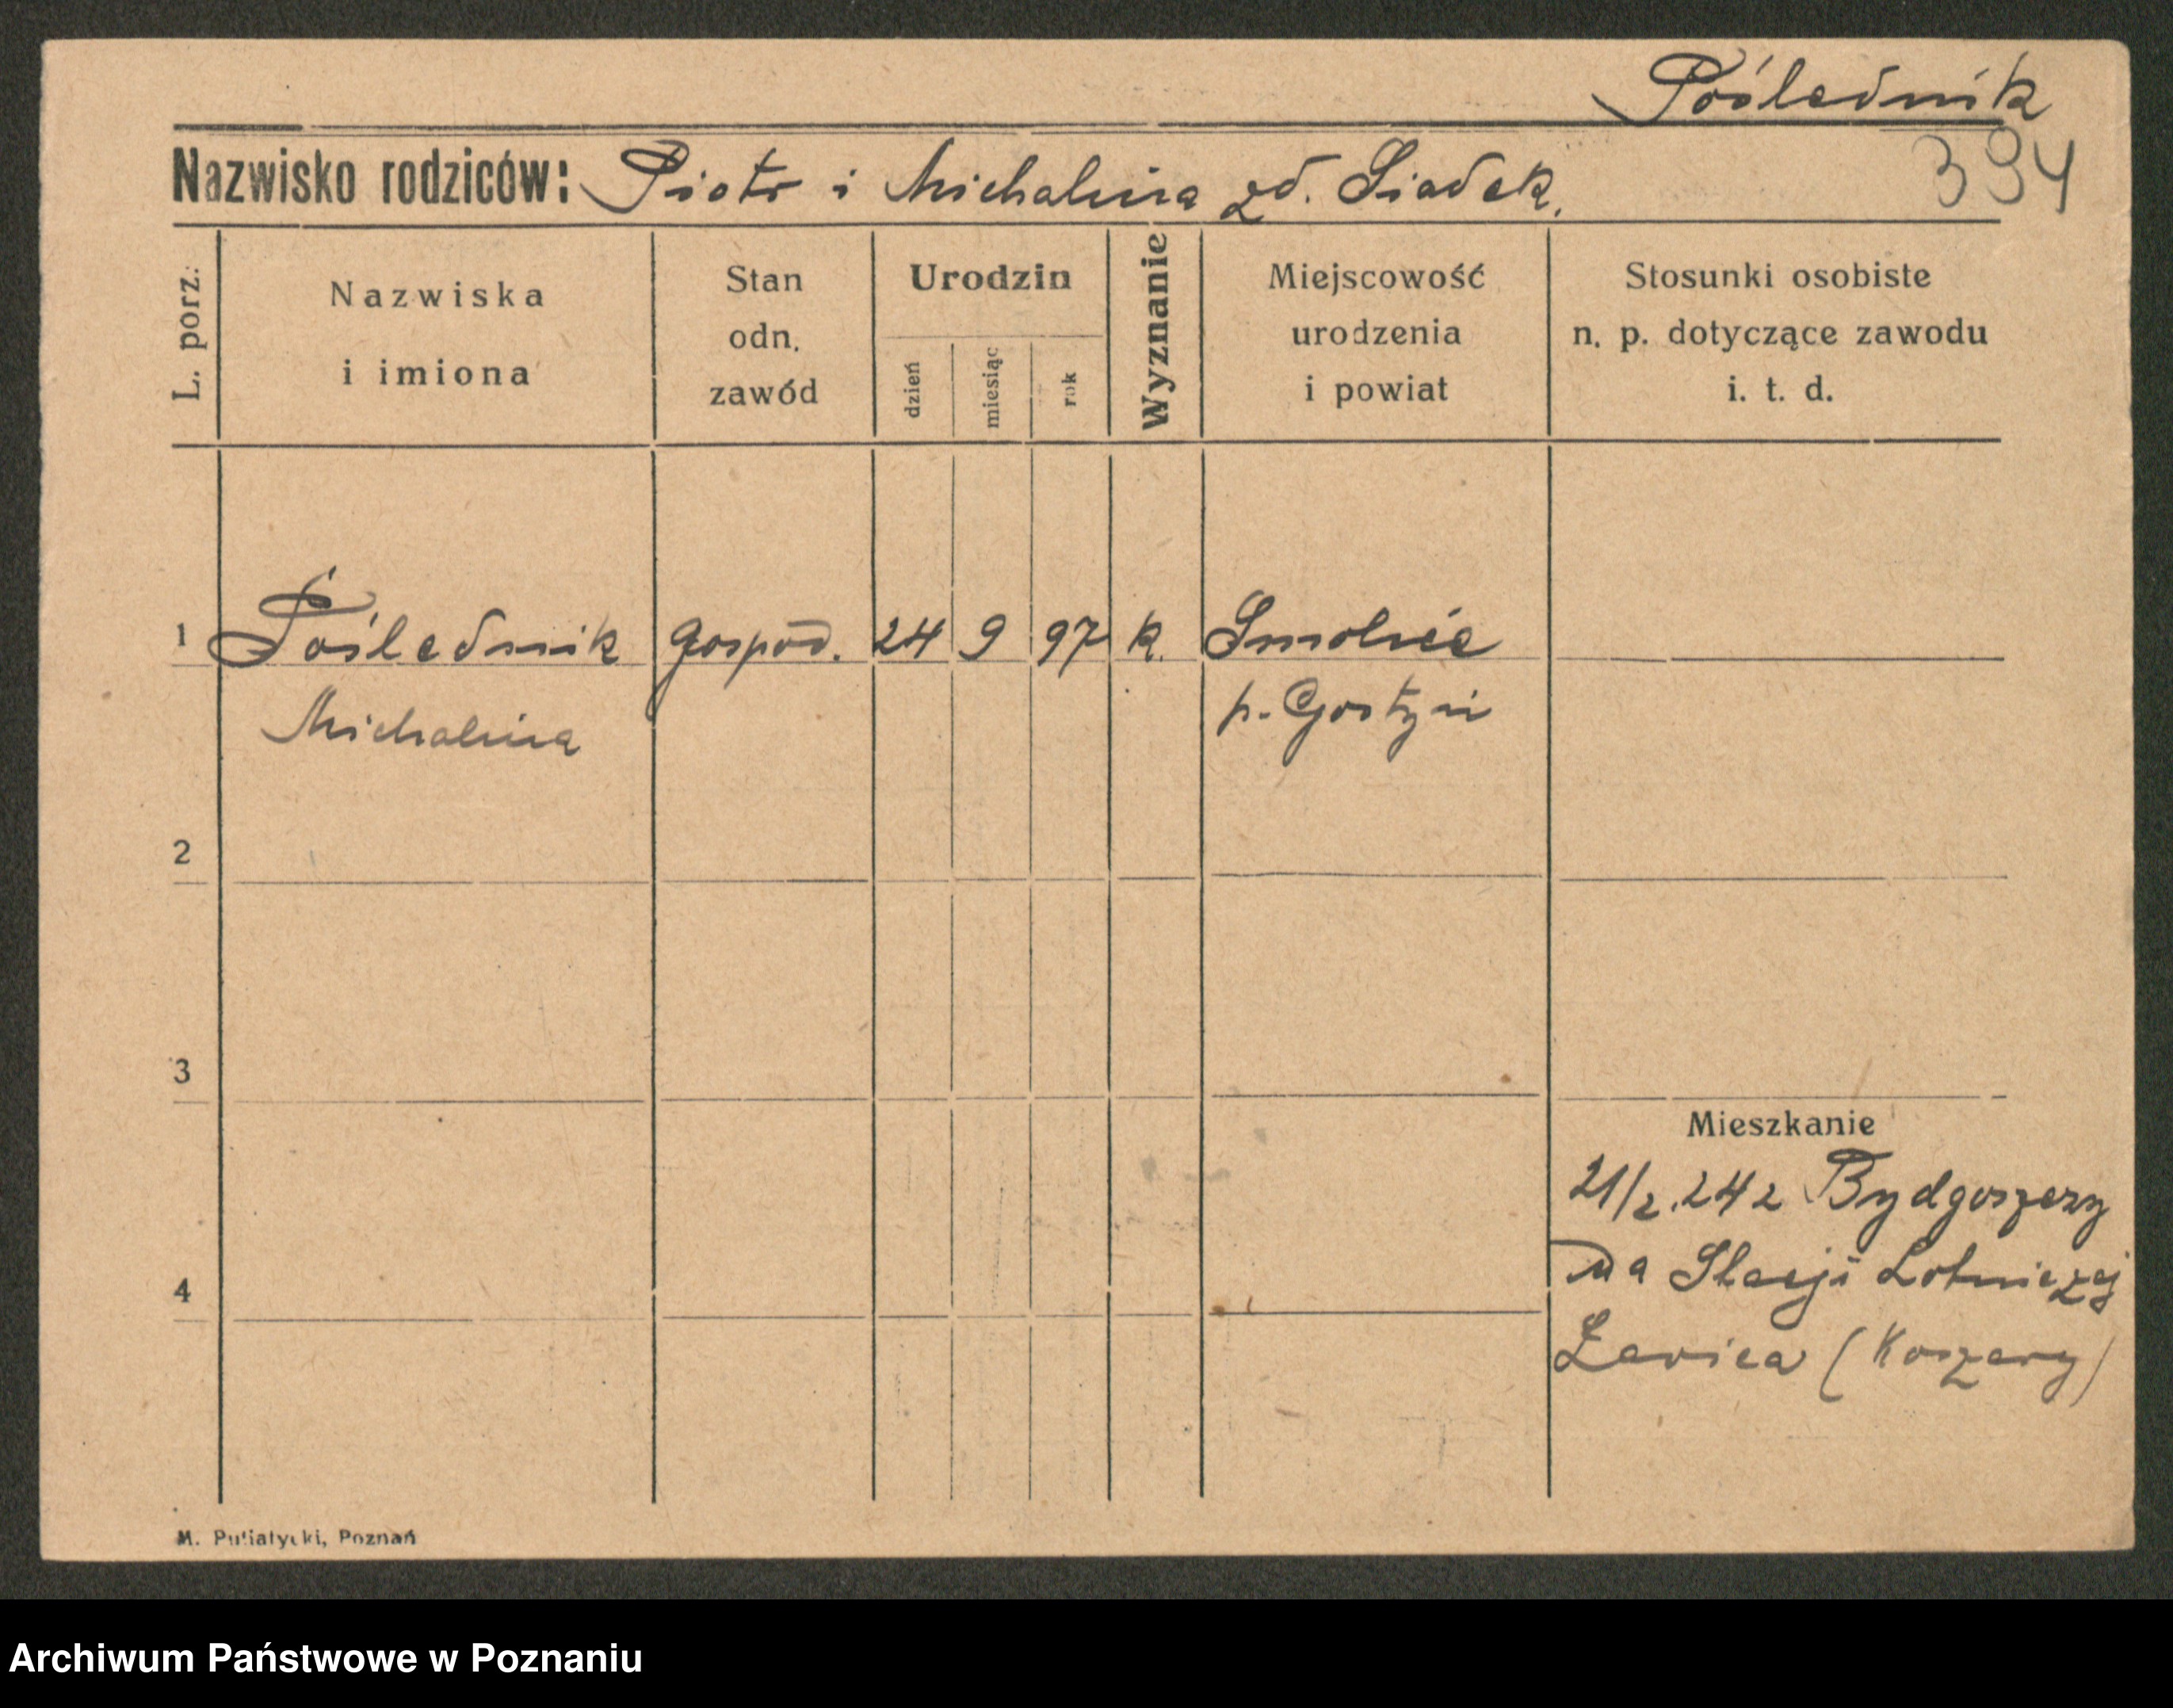 Poślednik
Nazwisko rodziców: Piotr i Michalina zd. Siadek.
394
L. porz.
Nazwiska
i imiona
Stan
odn.
zawód
Urodzin
dzień
miesiąc
rok
Wyznanie
Miejscowość
urodzenia
i powiat
Stosunki osobiste
n. p. dotyczące zawodu
i. t. d.
1 Poślednik gospod. 24 9 97 k. Smolice
Michalina p. Gostyń
2
3
4
Mieszkanie
21/2.24 z Bydgoszczy
na Stacji Lotniczej
Ławica (Koszary)
M. Putiatycki, Poznań
Archiwum Państwowe w Poznaniu